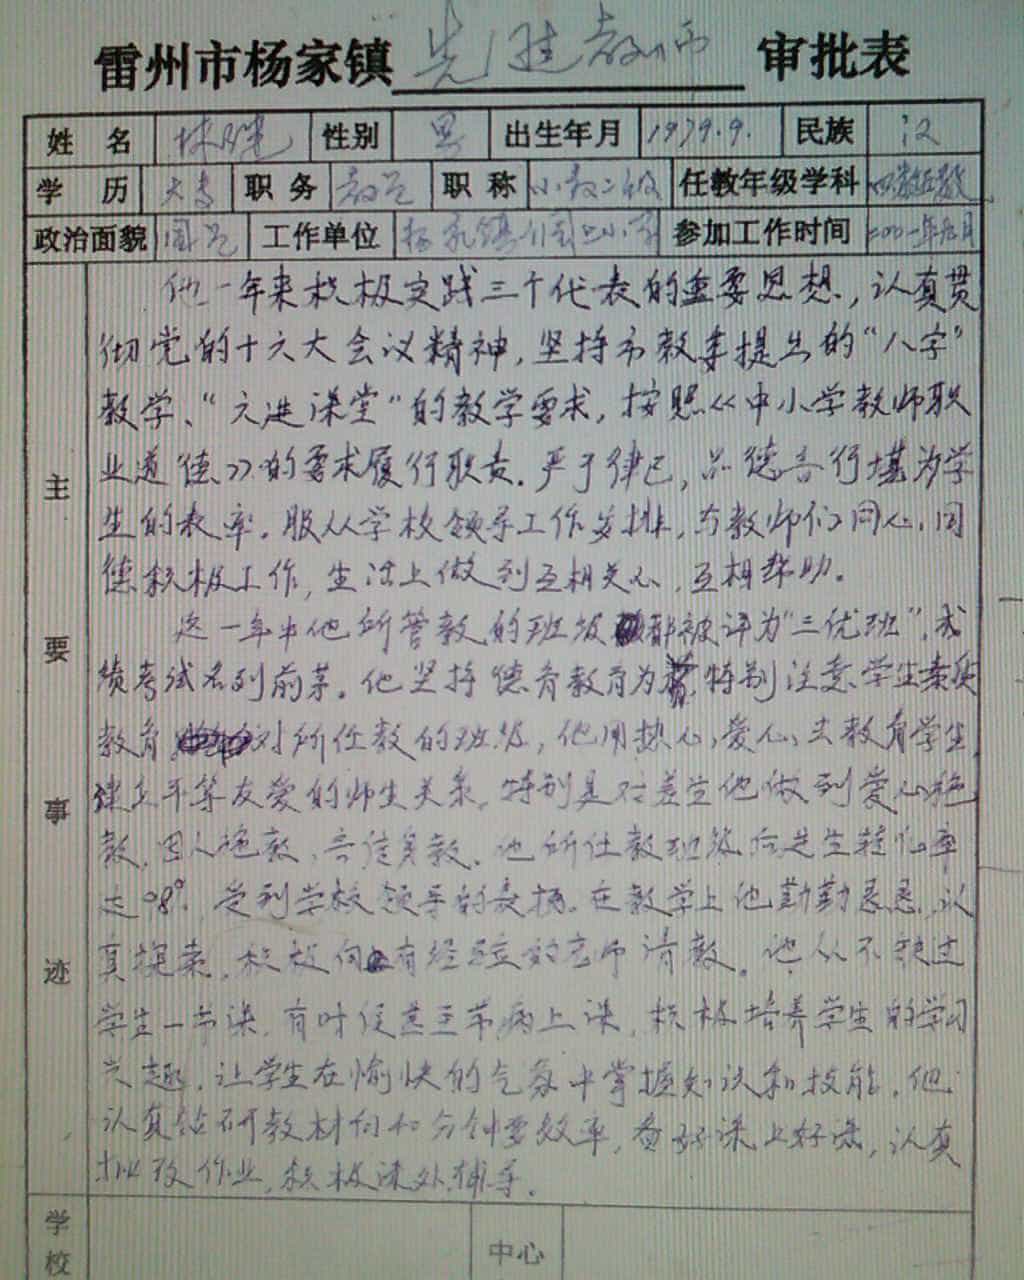 雷州市杨家镇 先进教师 审批表
姓名 林 性别 男 出生年月 1979.9. 民族 汉
学历 大专 职务 教员 职称 小教二级 任教年级学科
政治面貌 团员 工作单位 杨家镇 小学 参加工作时间 二00一年 月
主要事迹
他一年来积极实践三个代表的重要思想，认真贯
彻党的十六大会议精神，坚持市教委提出的“八字”
教学、“六进课堂”的教学要求，按照《中小学教师职
业道德》的要求履行职责。严于律己，品德言行堪为学
生的表率。服从学校领导工作安排，与教师们同心同
德积极工作，生活上做到互相关心，互相帮助。
这一年中他所管教的班级都被评为“三优班”，成
绩考试名列前茅。他坚持德育教育为 ，特别注意学生素质
教育，对所任教的班级，他用热心，爱心，去教育学生
建立平等友爱的师生关系，特别是对差生他做到爱心施
教，因人施教，言传身教。他所任教班级后进生转化率
达98%，受到学校领导的表扬。在教学上他勤勤恳恳，认
真探索，积极向有经验的老师请教。他从不缺过
学生一节课，有时侯甚至带病上课，积极培养学生的学习
兴趣，让学生在愉快的气氛中掌握知识和技能，他
认真钻研教材向40分钟要效率，备好课上好课，认真
批改作业，积极课外辅导。
学校 中心